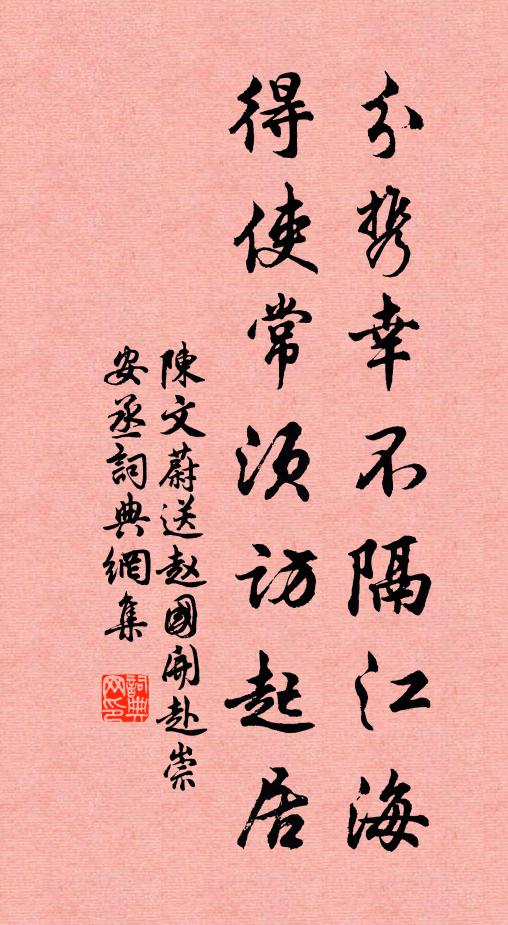 分携幸不隔江海
得使常須訪起居
陳文蔚送赵國開赴崇
安丞詞典網集
詞典
网印